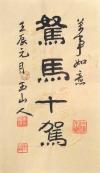 萬事如意
駑馬十駕
壬辰元月西山人